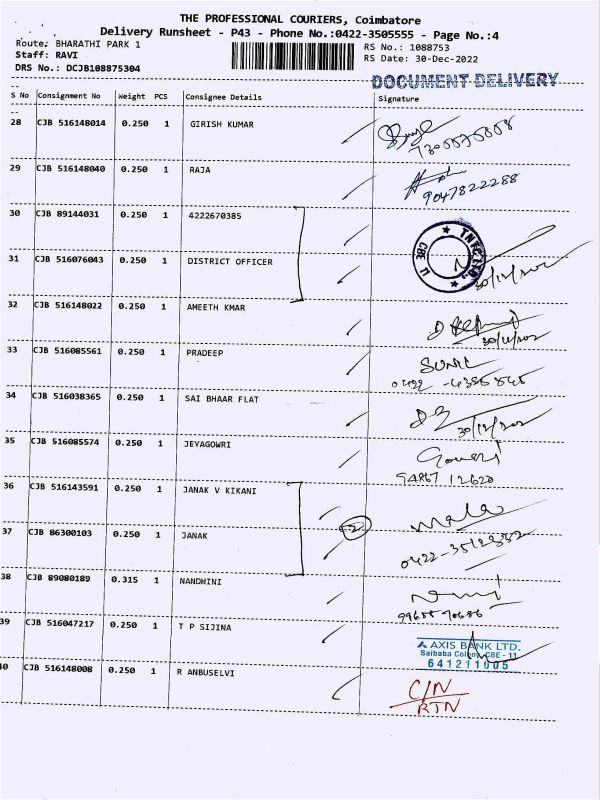 THE PROFESSIONAL COURIERS, Coimbatore
Delivery Runsheet - P43 - Phone No.:0422-3505555 - Page No.:4
Route: BHARATHI PARK 1
RS No.: 1088753
Staff: RAVI
RS Date: 30-Dec-2022
DRS No.: DCJB108875304
DOCUMENT DELIVERY
S No Consignment No Weight PCS Consignee Details Signature
28 CJB 516148014 0.250 1 GIRISH KUMAR
29 CJB 516148040 0.250 1 RAJA
9047822288
30 CJB 89144031 0.250 1 4222670385
31 CJB 516076043 0.250 1 DISTRICT OFFICER
CBE 11
32 CJB 516148022 0.250 1 AMEETH KMAR
33 CJB 516085561 0.250 1 PRADEEP
SUNIL
34 CJB 516038365 0.250 1 SAI BHAAR FLAT
35 CJB 516085574 0.250 1 JEYAGOWRI
Gowri
94867 12620
36 CJB 516143591 0.250 1 JANAK V KIKANI
Mala
37 CJB 86300103 0.250 1 JANAK
2
38 CJB 89080189 0.315 1 NANDHINI
39 CJB 516047217 0.250 1 T P SIJINA
AXIS BANK LTD.
Saibaba Colony, CBE - 11
641211005
40 CJB 516148008 0.250 1 R ANBUSELVI
C/N
RTN